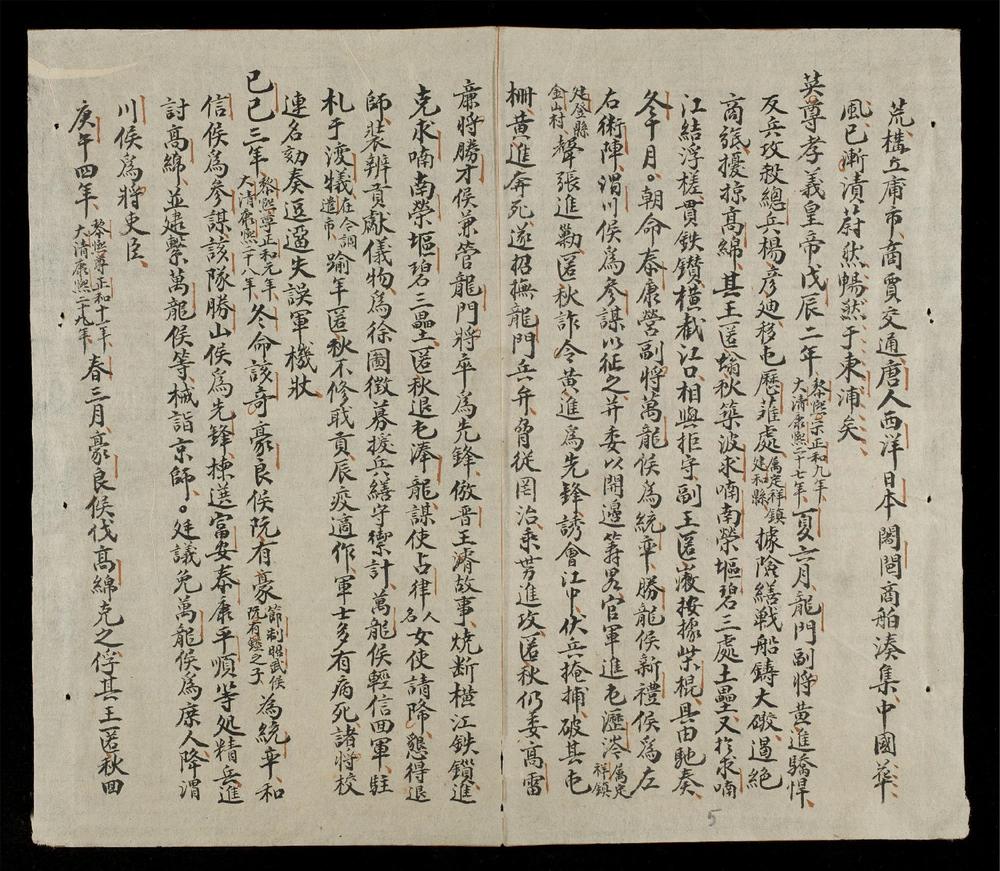 荒構立庸市商賈交通唐人西洋日本闍閣商舶湊集中國華
風已漸漬蔚然暢然于東浦矣
英尊孝義皇帝戊辰二年黎熙宗正和九年大清康熙二十七年夏六月龍門副將黃進驕悍
反兵攻殺總兵楊彥迪移屯歷𦲷處屬定祥鎮建和縣據險繕戰船鑄大礮遏絕
商旅擾掠高綿其王匿翁秋築波求喃南榮塸碧三處土壘又於求喃
江結浮槎貫鉄鑽橫截江口相與拒守副王匿嫩按據柴棍具由馳奏
冬十月朝命泰康營副將萬龍侯為統率勝龍侯新禮侯為左
右衛陣渭川侯為參謀以征之并委以開邊籌畧官軍進屯瀝涔屬定祥鎮
建登縣金山村聲張進勦匿秋詐令黃進為先鋒誘會江中伏兵掩捕破其屯
柵黃進奔死遂招撫龍門兵弁脅從罔治乘勢進攻匿秋仍委高雷
亷將勝才侯兼管龍門將卒為先鋒倣晋王濬故事燒断橫江鉄鎖進
克求喃南榮塸碧三壘匿秋退屯湊龍謀使占律人名女使請降懇得退
師裝辨貢獻儀物為徐圖徵募援兵繕守禦計萬龍侯輕信回軍駐
札于淎犠在今詷遣市踰年匿秋不修戢貢辰疫適作軍士多有病死諸將校
連名劾奏逗遛失誤軍機狀
己巳三年黎熙尊正和元年大清康熙二十八年冬命該奇豪良侯阮有豪節制昭武侯阮有鎰之子為統率和
信侯為參謀該隊勝山侯為先鋒揀選富安泰康平順等処精兵進
討高綿並逮繫萬龍侯等械詣京師廷議免萬龍侯為庶人降渭
川侯為將吏臣
庚午四年黎熙尊正和十一年大清康熙二十九年春三月豪良侯伐高綿克之俘其王匿秋回
5